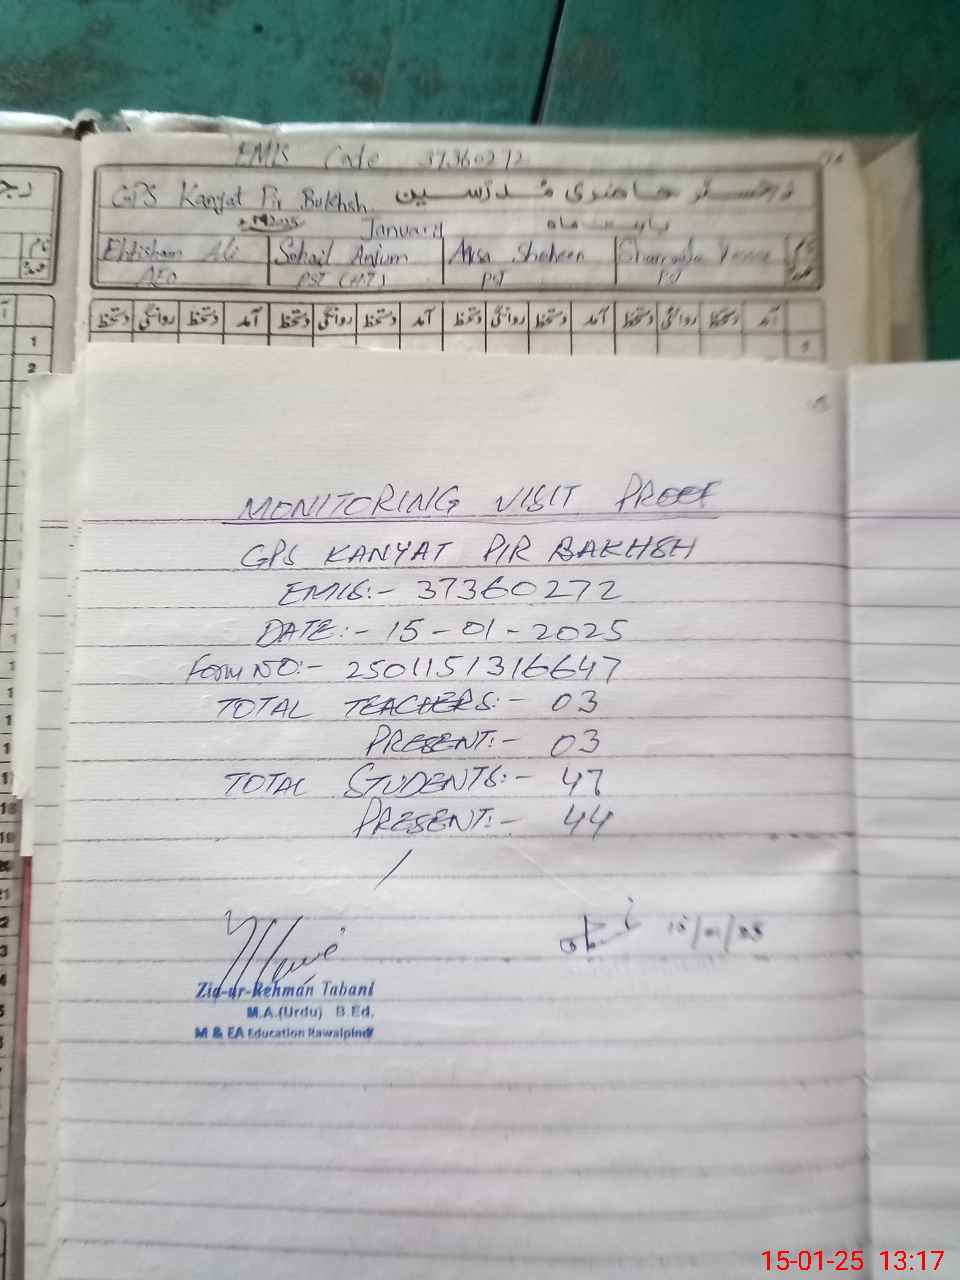 EMIS Code 37360272
GPS Kanyat Pir Bukhsh رجسٹر حاضری مدرسین
January بابت ماہ
Ehtisham Ali Sohail Anjum Aqsa Shaheen نام
AEO PST (H.T) PST PST عہدہ
دستخط روانگی دستخط آمد دستخط روانگی دستخط آمد دستخط روانگی دستخط آمد دستخط روانگی دستخط آمد
1
2
MONITORING VISIT PROOF
GPS KANYAT PIR BAKHSH
EMIS:- 37360272
DATE:- 15-01-2025
Form NO:- 2501151316647
TOTAL TEACHERS:- 03
PRESENT:- 03
TOTAL STUDENTS:- 47
PRESENT:- 44
15/01/25
Zia-ur-Rehman Tabani
M.A.(Urdu) B.Ed.
M & EA Education Rawalpindi
18
19
20
21
15-01-25 13:17